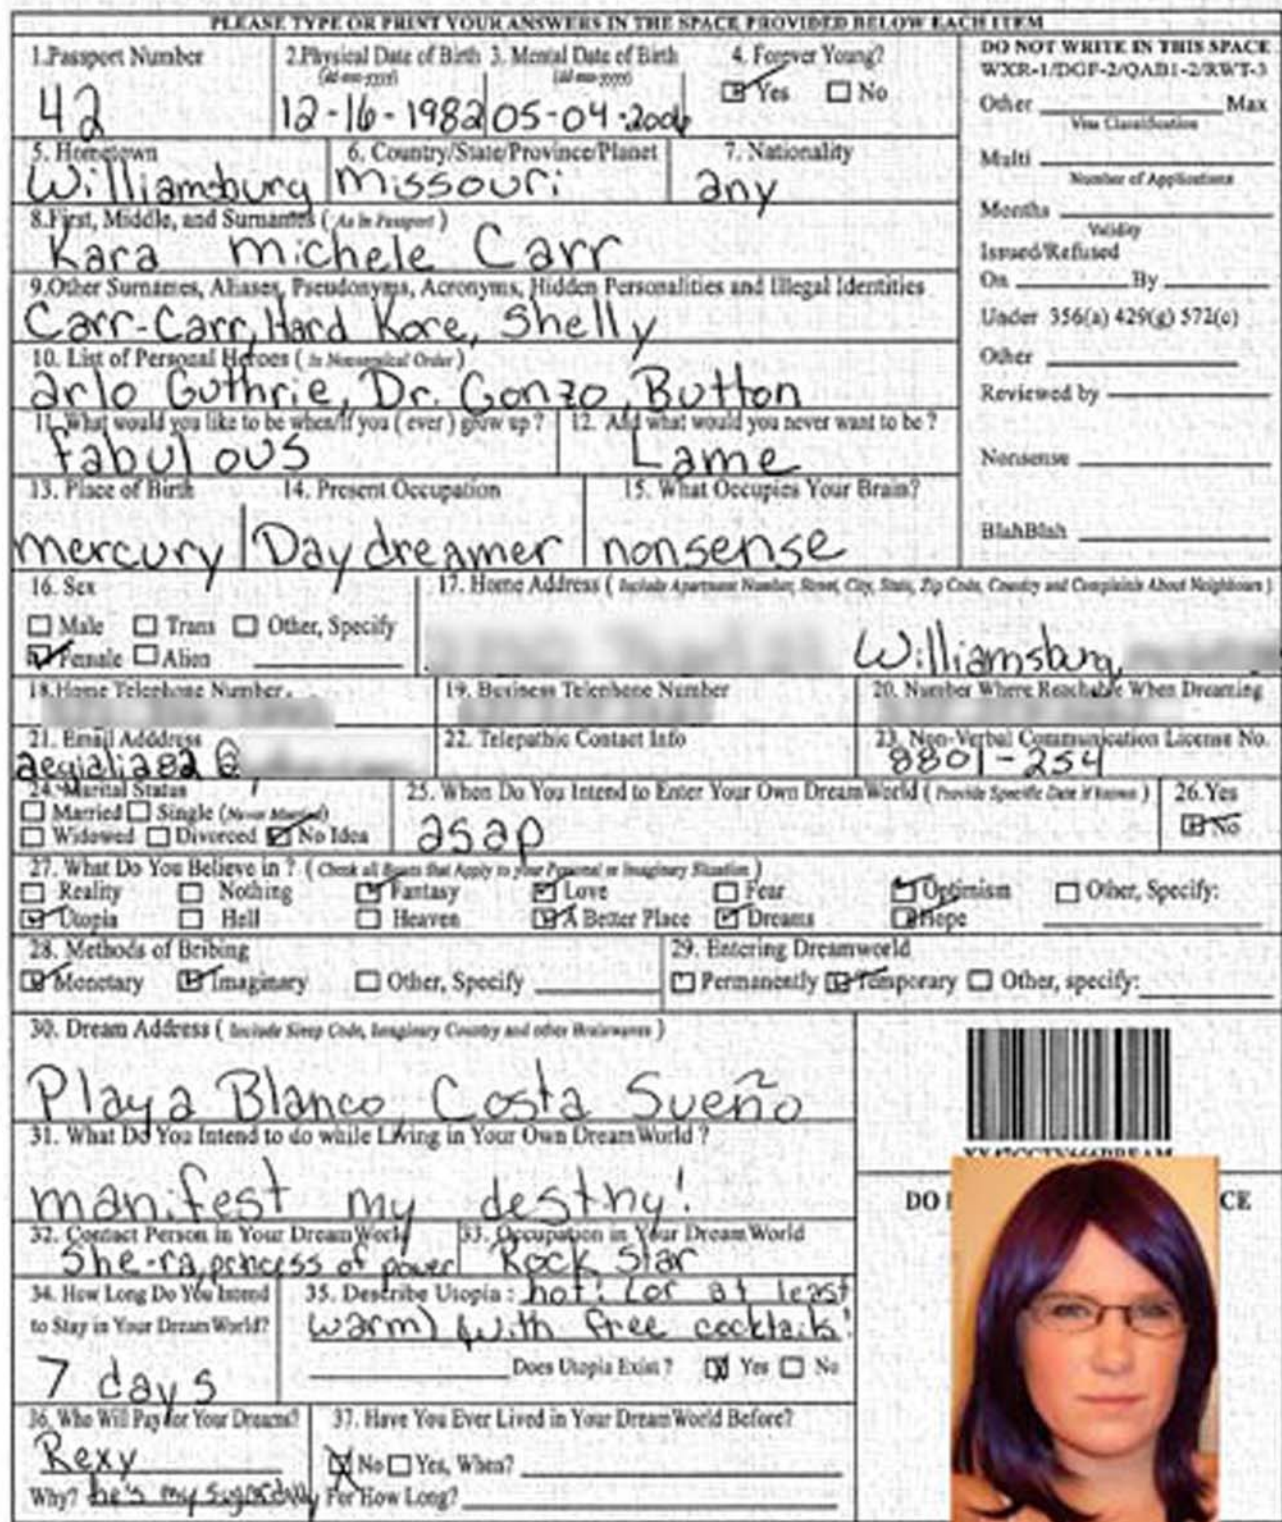 PLEASE TYPE OR PRINT YOUR ANSWERS IN THE SPACE PROVIDED BELOW EACH ITEM
1.Passport Number
42
2.Physical Date of Birth
(dd-mm-yyyy)
12-16-1982
3. Mental Date of Birth
(dd-mm-yyyy)
05-04-2006
4. Forever Young?
Yes No
DO NOT WRITE IN THIS SPACE
WXR-1/DGF-2/QAB1-2/RWT-3
Other Max
Visa Classification
Multi
Number of Applications
Months
Validity
Issued/Refused
On By
Under 356(a) 429(g) 572(c)
Other
Reviewed by
Nonsense
BlahBlah
5. Hometown
Williamsburg
6. Country/State/Province/Planet
missouri
7. Nationality
any
8.First, Middle, and Surnames ( As in Passport )
Kara michele Carr
9.Other Surnames, Aliases, Pseudonyms, Acronyms, Hidden Personalities and Illegal Identities
Carr-Carr, Hard Kore, Shelly
10. List of Personal Heroes ( in Nonsensical Order )
arlo Guthrie, Dr. Gonzo, Button
11. What would you like to be when/if you ( ever ) grow up ?
fabulous
12. And what would you never want to be ?
Lame
13. Place of Birth
mercury
14. Present Occupation
Daydreamer
15. What Occupies Your Brain?
nonsense
16. Sex
Male Trans Other, Specify
Female Alien
17. Home Address ( Include Apartment Number, Street, City, State, Zip Code, Country and Complaints About Neighbours )
Williamsburg,
18.Home Telephone Number.
19. Business Telephone Number
20. Number Where Reachable When Dreaming
21. Email Adddress
aegialia82@
22. Telepathic Contact Info
23. Non-Verbal Communication License No.
8801-254
24. Marital Status
Married Single (Never Married)
Widowed Divorced No Idea
25. When Do You Intend to Enter Your Own DreamWorld ( Provide Specific Date if known )
asap
26.Yes
No
27. What Do You Believe in ? ( Check all Boxes that Apply to your Personal or Imaginary Situation )
Reality Nothing Fantasy Love Fear Optimism Other, Specify:
Utopia Hell Heaven A Better Place Dreams Hope
28. Methods of Bribing
Monetary Imaginary Other, Specify
29. Entering Dreamworld
Permanently Temporary Other, specify:
30. Dream Address ( Include Sleep Code, Imaginary Country and other Brainwaves )
Playa Blanco, Costa Sueño
31. What Do You Intend to do while Living in Your Own DreamWorld ?
manifest my destny!
32. Contact Person in Your DreamWorld
She-ra, princess of power
33. Occupation in Your DreamWorld
Rock Star
34. How Long Do You Intend
to Stay in Your DreamWorld?
7 days
35. Describe Utopia : hot! (or at least
warm) with free cocktails!
Does Utopia Exist ? Yes No
36. Who Will Pay for Your Dreams?
Rexy
Why? he's my
37. Have You Ever Lived in Your DreamWorld Before?
No Yes, When?
For How Long?
DO CE